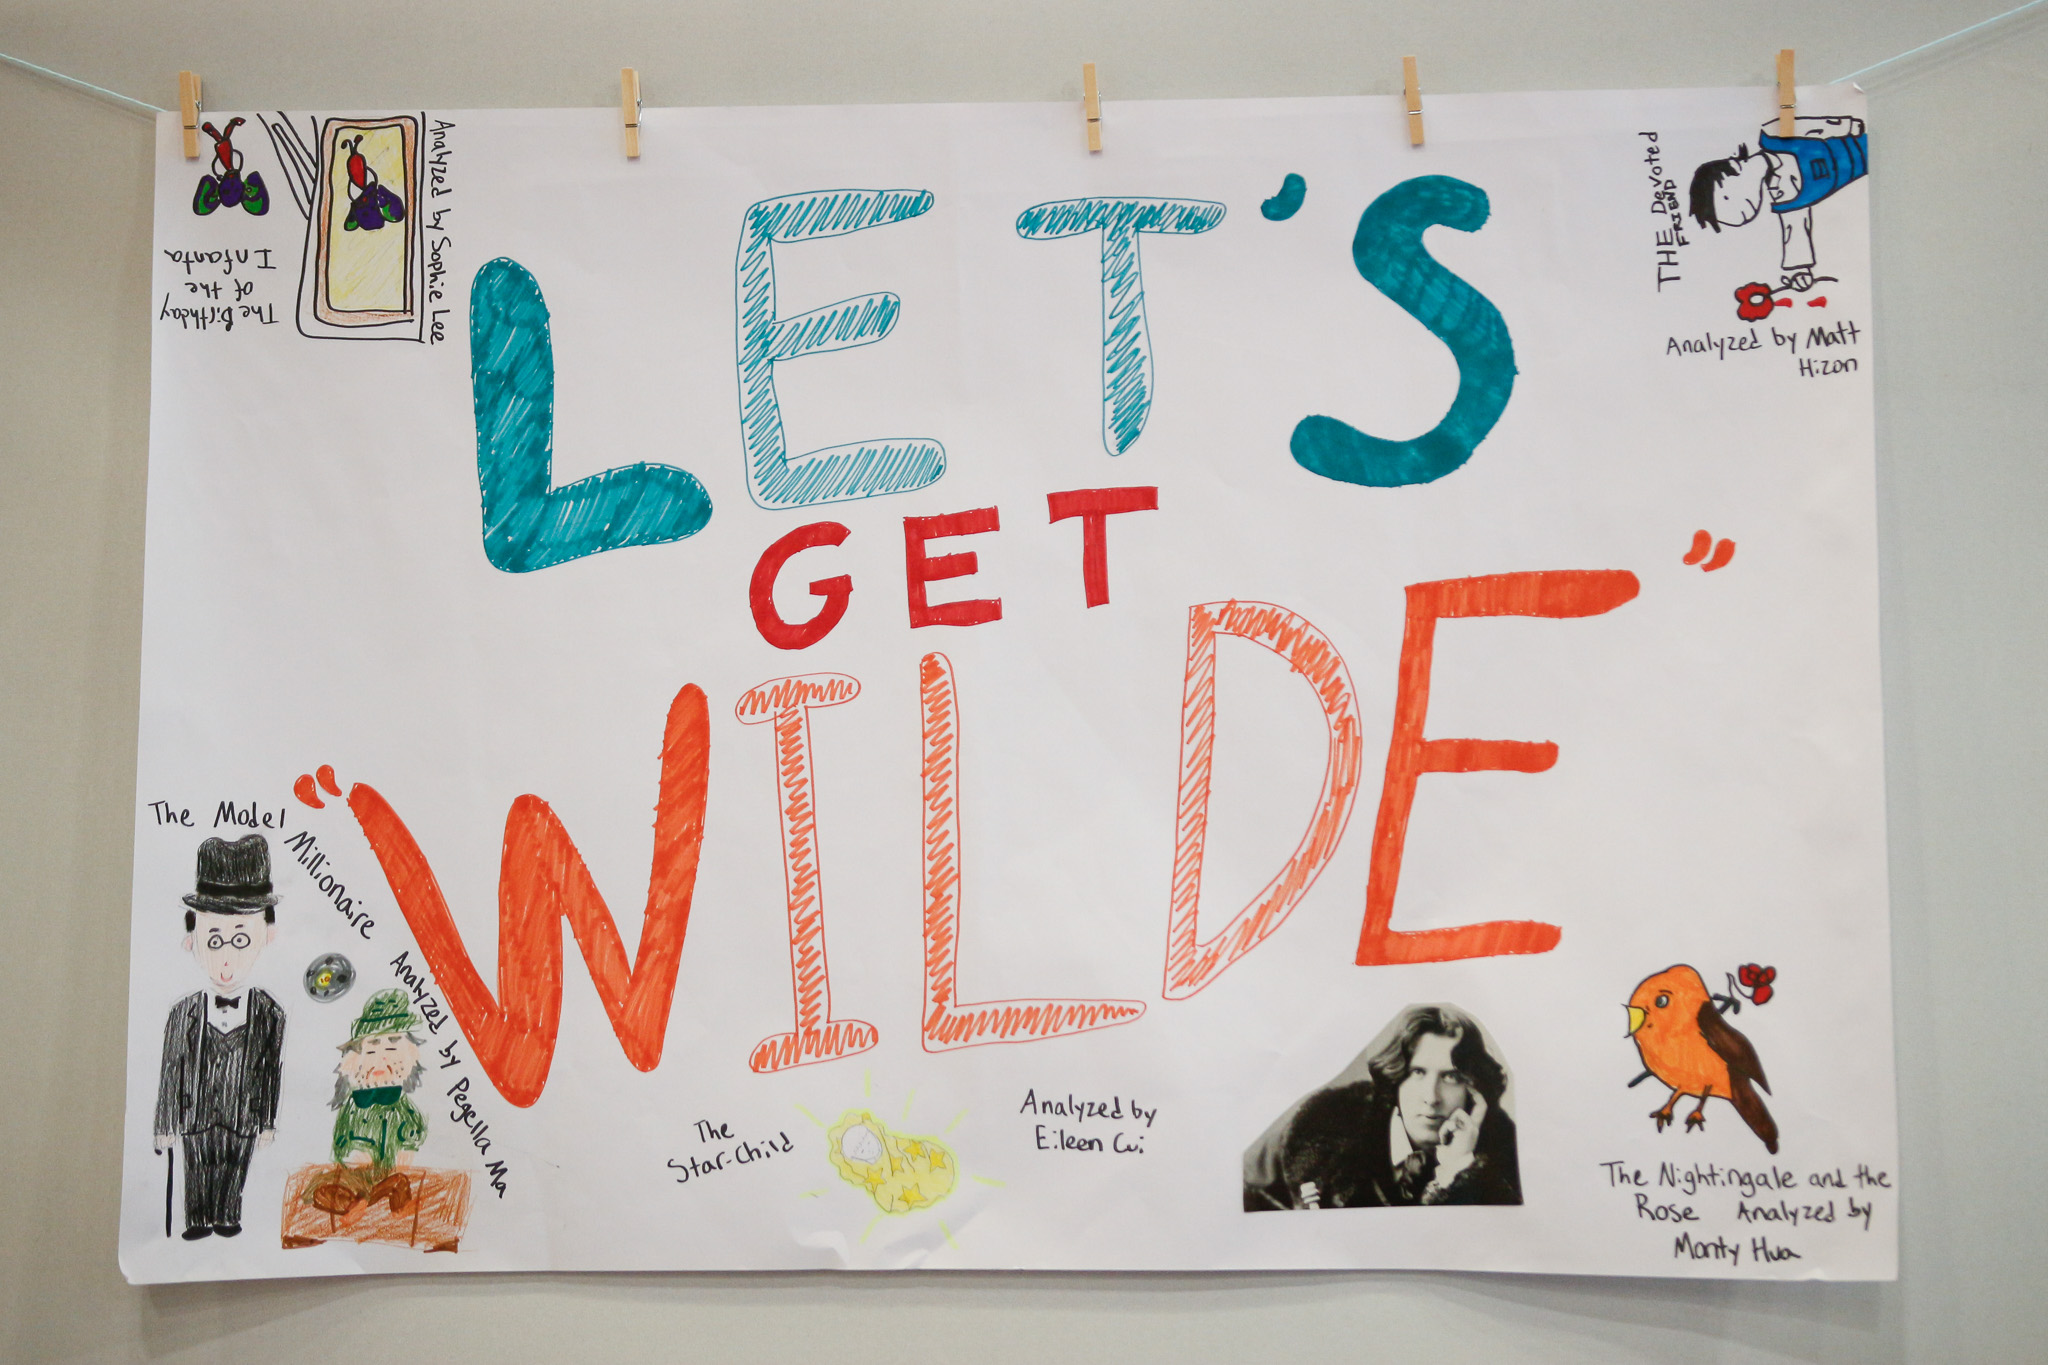 LET'S
GET
"WILDE"
The Birthday
of the
Infanta
Analyzed by Sophie Lee
THE Devoted
FRIEND
Analyzed by Matt
Hizon
The Model
Millionaire
Analyzed by Pegella Ma
The
Star-Child
Analyzed by
Eileen Cui
The Nightingale and the
Rose Analyzed by
Monty Hua